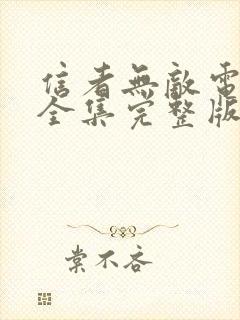 信者無敵電
全集完整版
棠不吝